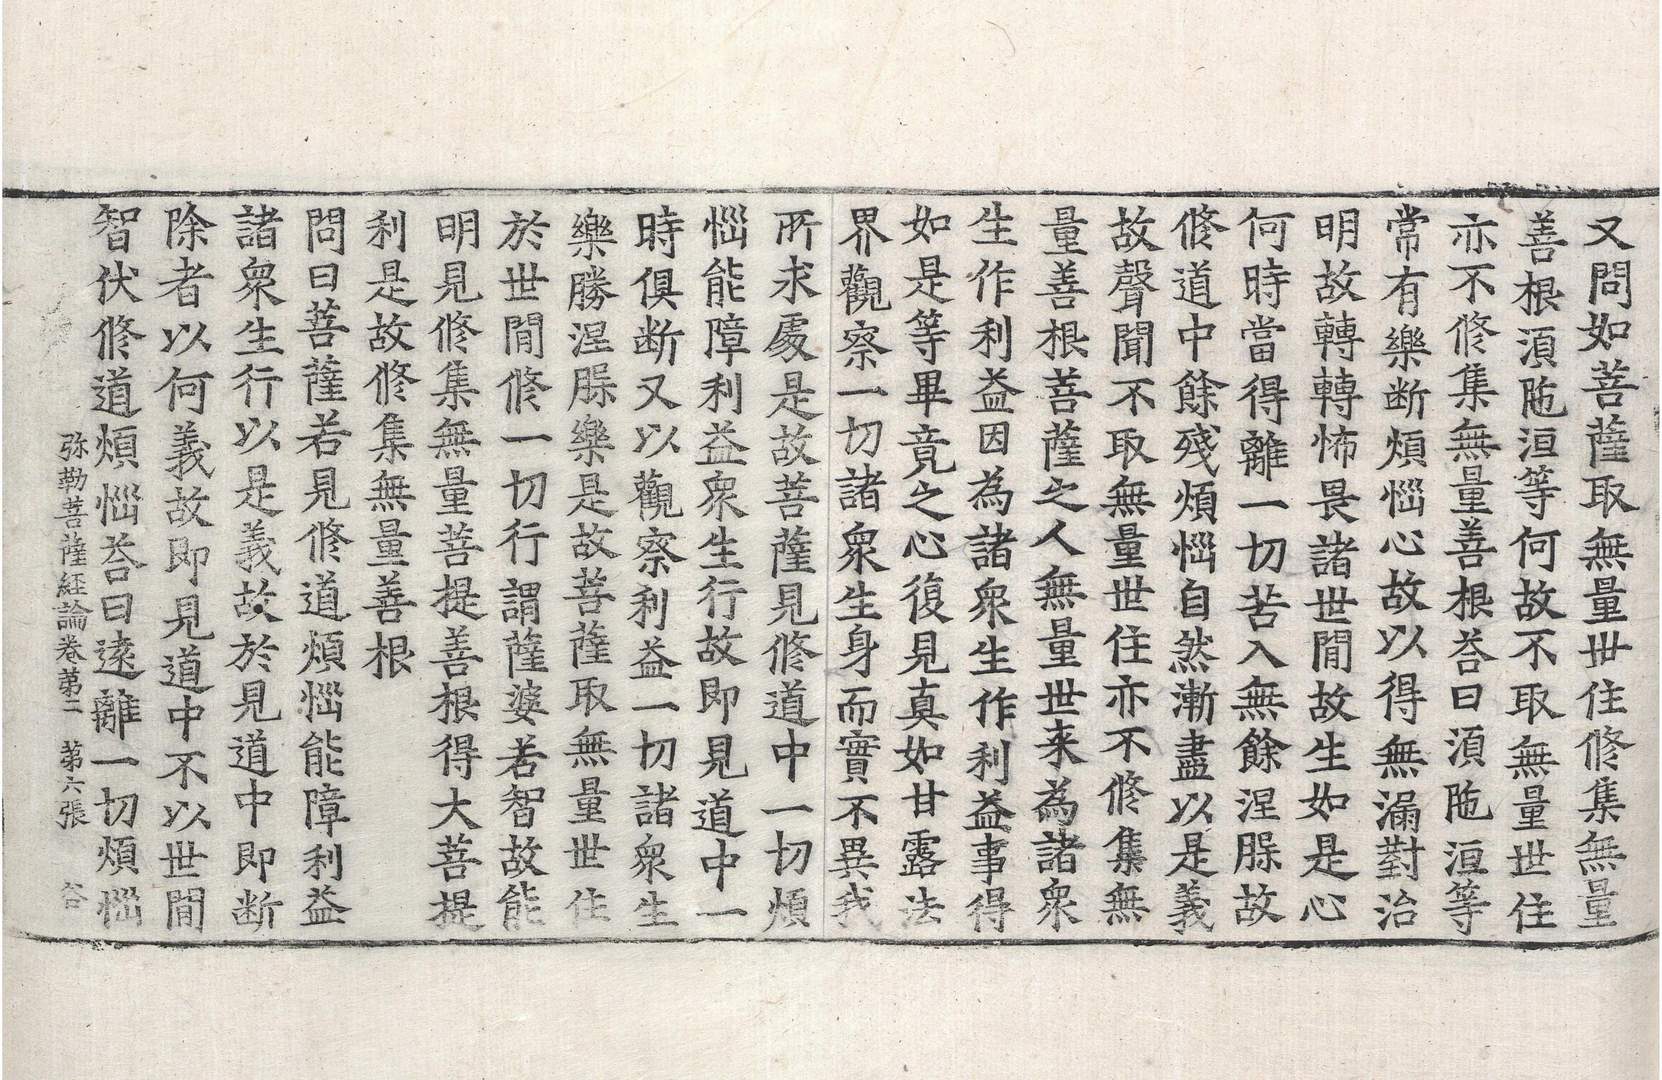 又問如菩薩取無量世住修集無量
善根須陁洹等何故不取無量世住
亦不修集無量善根荅曰須陁洹等
常有樂断煩惱心故以得無漏對治
明故轉轉怖畏諸世間故生如是心
何時當得離一切苦入無餘涅槃故
修道中餘殘煩惱自然漸盡以是義
故聲聞不取無量世住亦不修集無
量善根菩薩之人無量世来為諸衆
生作利益因為諸衆生作利益事得
如是等畢竟之心復見真如甘露法
界觀察一切諸衆生身而實不異我
所求處是故菩薩見修道中一切煩
惱能障利益衆生行故即見道中一
時俱断又以觀察利益一切諸衆生
樂勝涅槃樂是故菩薩取無量世住
於世間修一切行謂薩婆若智故能
明見修集無量菩提善根得大菩提
利是故修集無量善根
問曰菩薩若見修道煩惱能障利益
諸衆生行以是義故於見道中即断
除者以何義故即見道中不以世間
智伏修道煩惱荅曰遠離一切煩惱
弥勒菩薩経論卷第二 第六張 谷